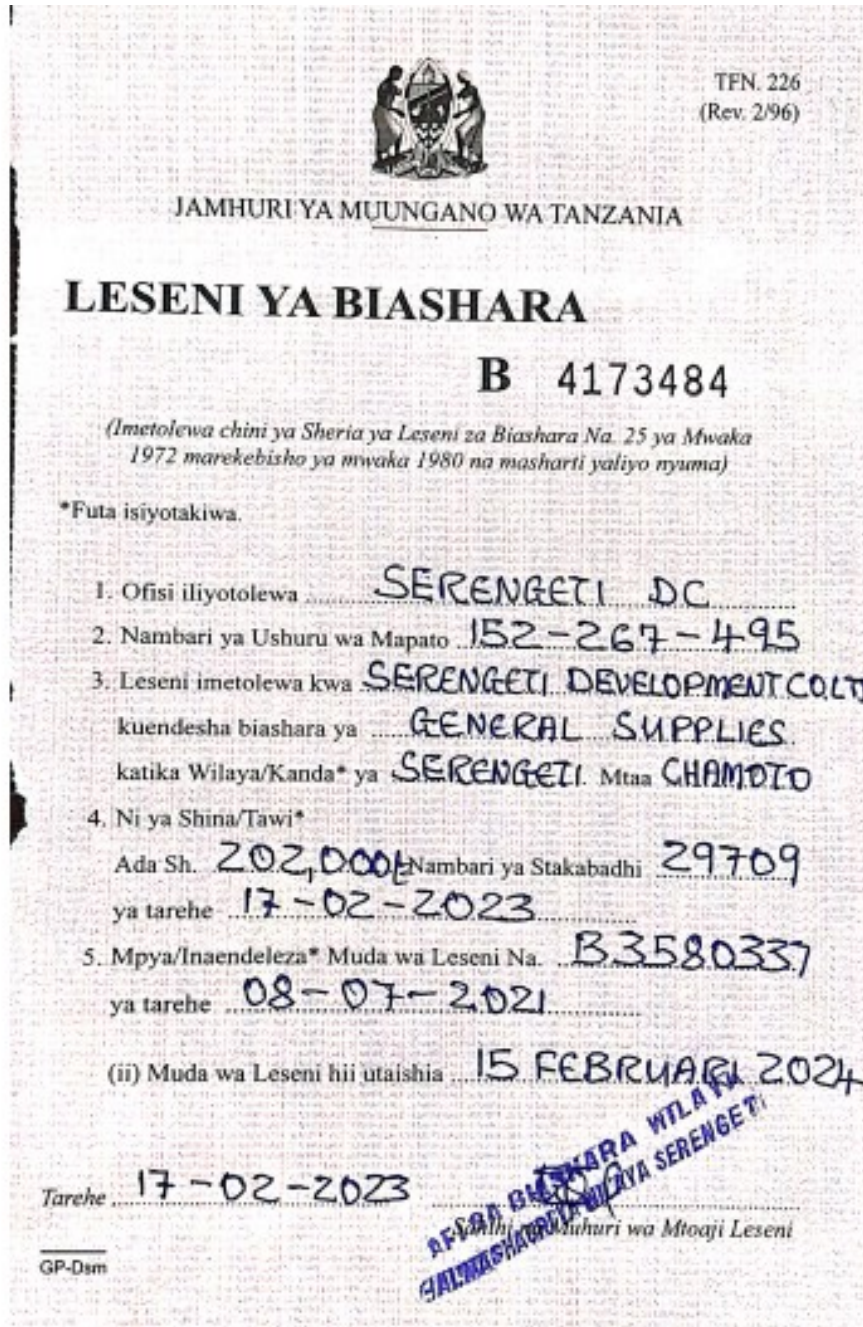 TFN. 226
(Rev. 2/96)
JAMHURI YA MUUNGANO WA TANZANIA
LESENI YA BIASHARA
B 4173484
(Imetolewa chini ya Sheria ya Leseni za Biashara Na. 25 ya Mwaka
1972 marekebisho ya mwaka 1980 na masharti yaliyo nyuma)
*Futa isiyotakiwa.
1. Ofisi iliyotolewa SERENGETI DC
2. Nambari ya Ushuru wa Mapato 152-267-495
3. Leseni imetolewa kwa SERENGETI DEVELOPMENT CO.LT
kuendesha biashara ya GENERAL SUPPLIES
katika Wilaya/Kanda* ya SERENGETI Mtaa CHAMOTO
4. Ni ya Shina/Tawi*
Ada Sh. 202,000/= Nambari ya Stakabadhi 29709
ya tarehe 17-02-2023
5. Mpya/Inaendeleza* Muda wa Leseni Na. B3580337
ya tarehe 08-07-2021
(ii) Muda wa Leseni hii utaishia 15 FEBRUARI 2024
Tarehe 17-02-2023
AFISA BIASHARA WILAYA
HALMASHAURI YA WILAYA SERENGETI
Sahihi na Muhuri wa Mtoaji Leseni
GP-Dsm